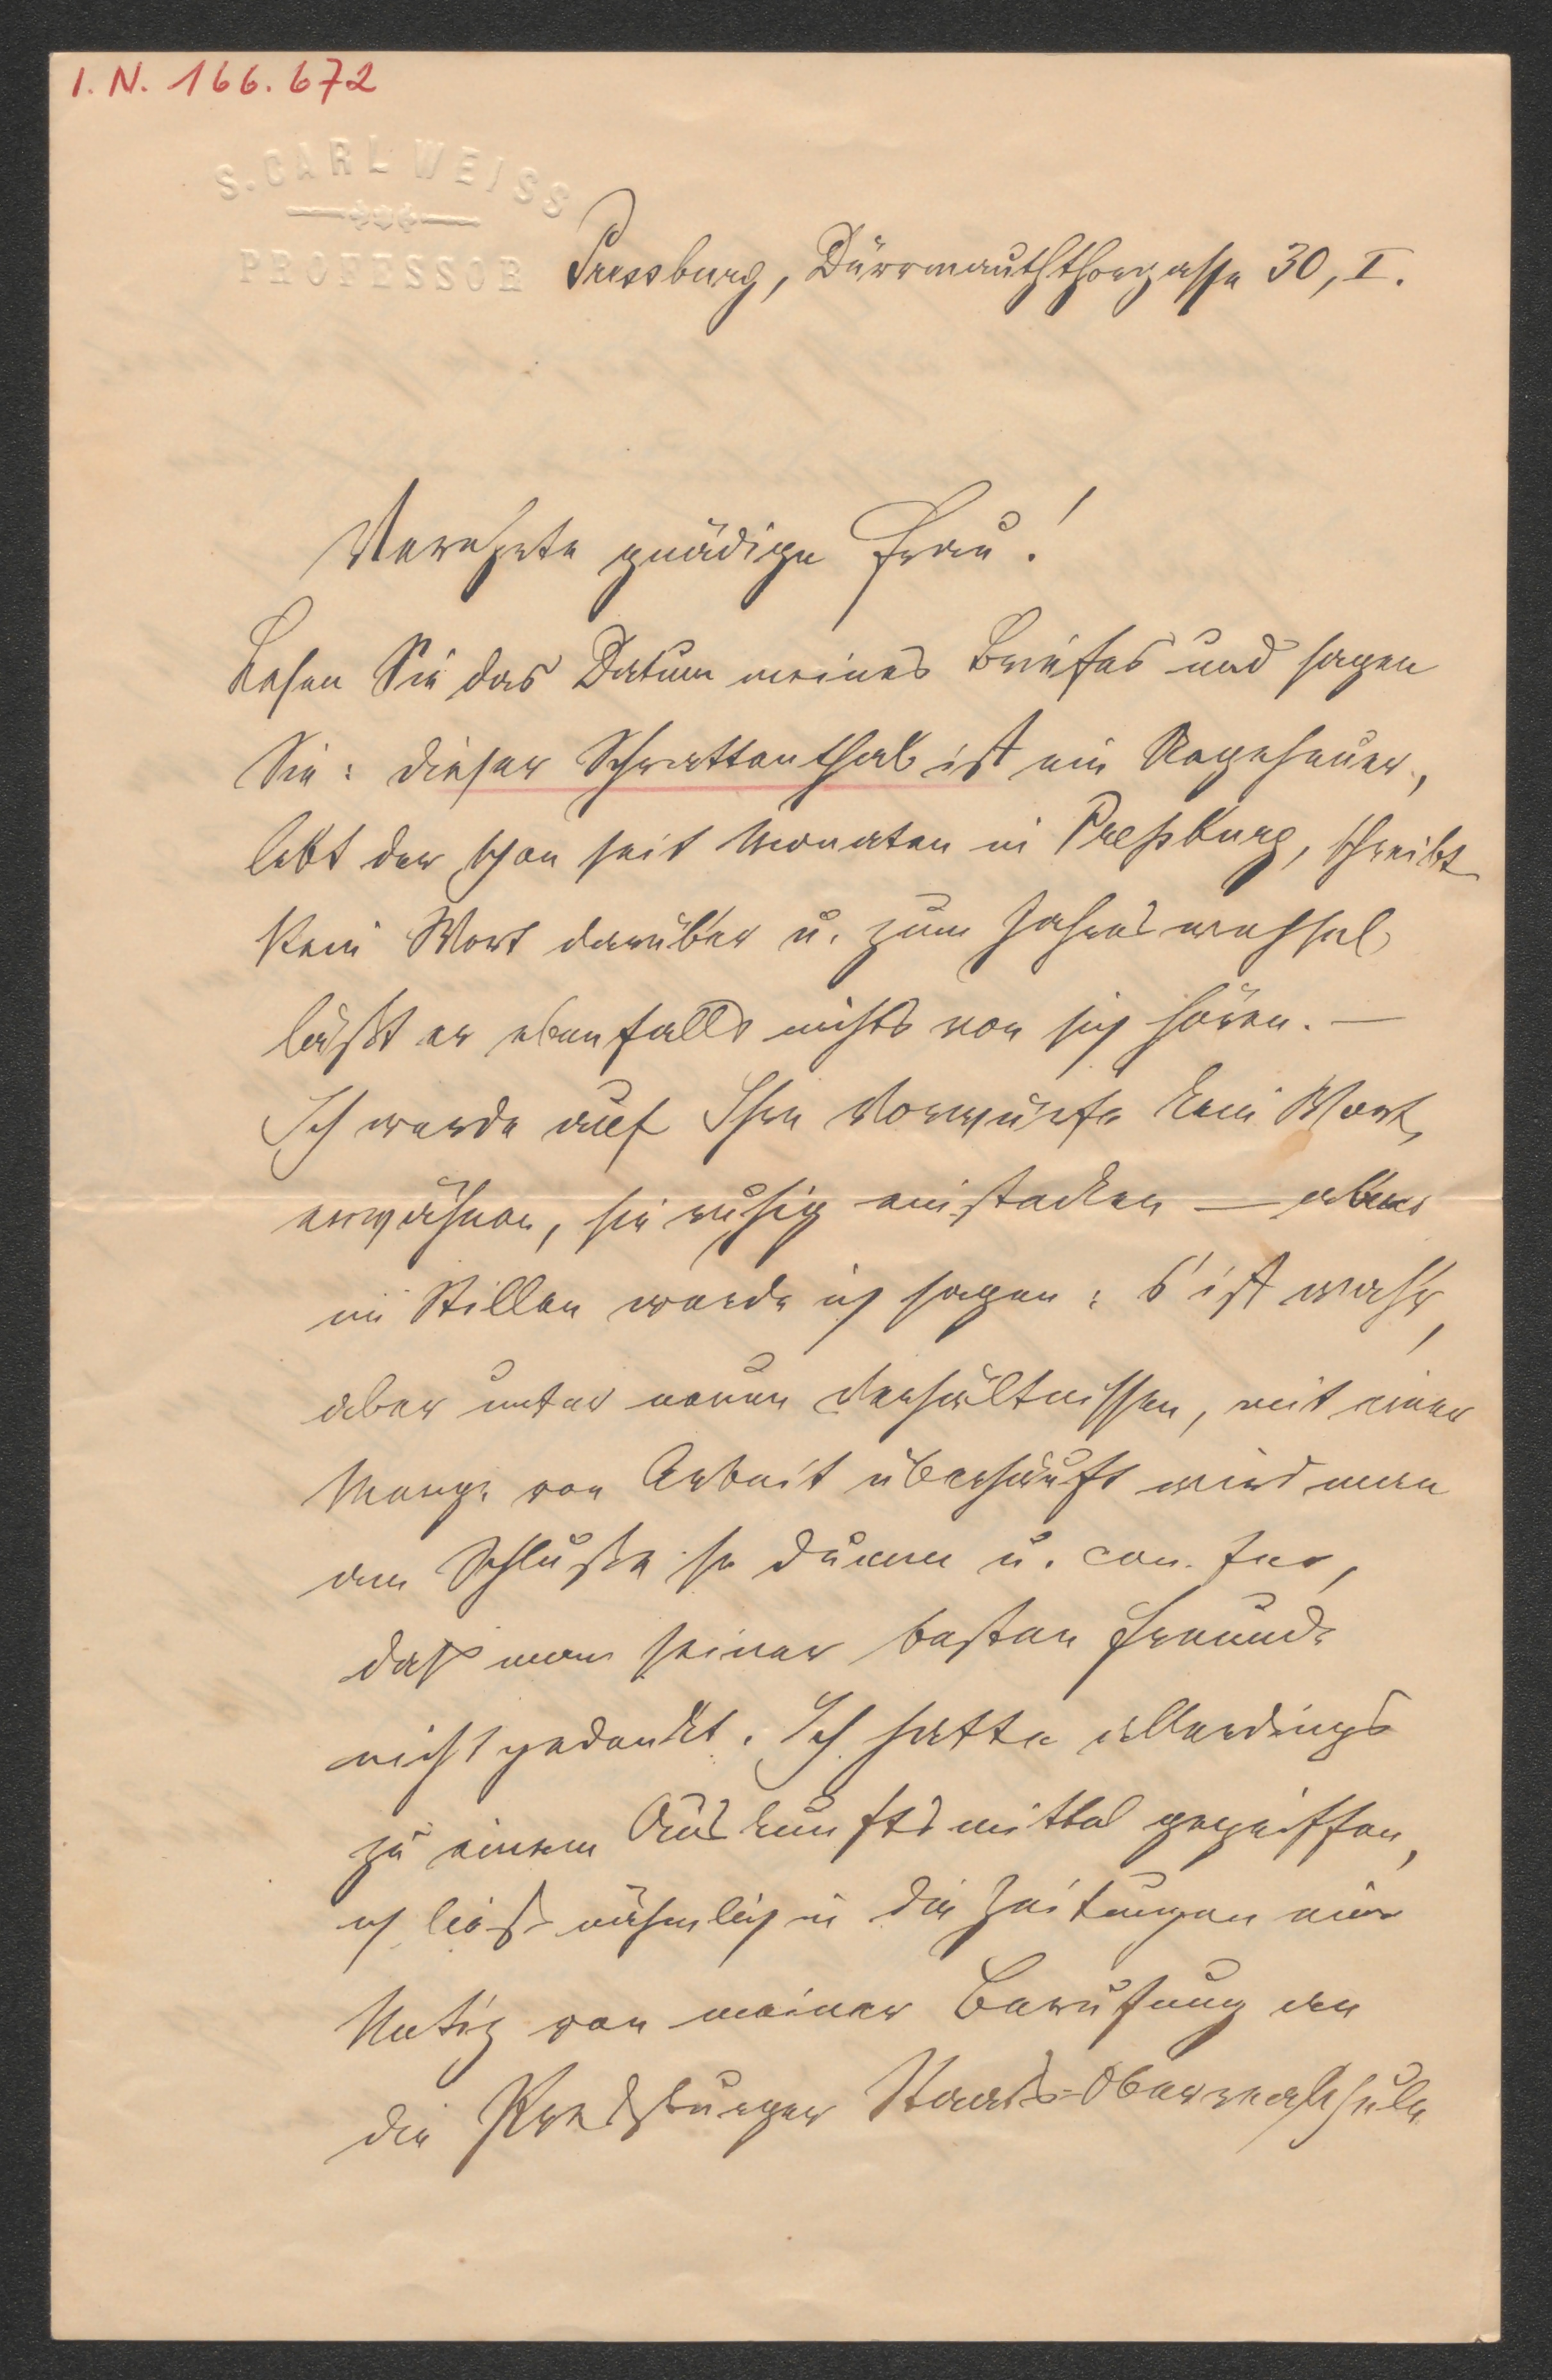 I. N. 166.672
S. CARL WEISS
PROFESSOR
Pressburg, Dürrmauththorgasse 30, I.
Verehrte gnädige Frau!
Lesen Sie das Datum meines Briefes und sagen
Sie: dieser Schrattenthal ist ein Ungeheuer,
lebt der schon seit Monaten in Preßburg, schreibt
kein Wort darüber u. zum Jahreswechsel
läßt er ebenfalls nichts von sich hören. —
Ich werde auf Ihre Vorwürfe kein Wort
erwähnen, sie ruhig einstecken — aber
im Stillen werde ich sagen: s'ist wahr,
aber unter neuen Verhältnissen, mit einer
Menge von Arbeit überhäuft wird man
am Schlusse so dumm u.
daß man seiner besten Freunde
nicht gedenkt. Ich hatte allerdings
zu einem Auskunftsmittel gegriffen,
ich ließ nähmlich in die Zeitungen eine
Notiz von meiner Berufung an
die Pressburger Staats-Oberrealschule